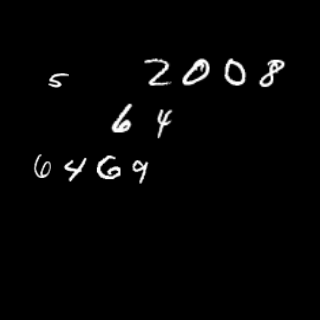 5 2008
64
6469